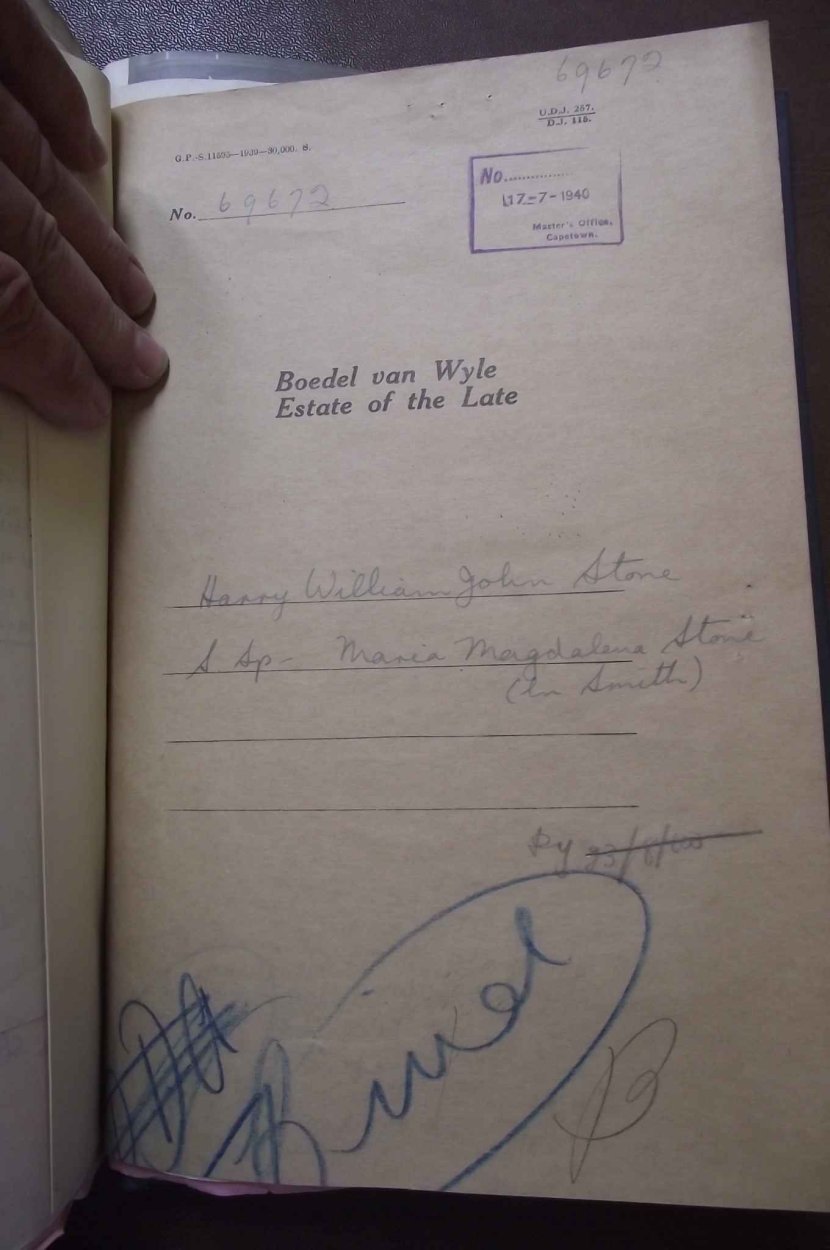 69672
U.D.J. 267.
D.J. 116.
G.P.-S.11695—1939—30,000. S.
No. 69672
No...............
17-7-1940
Master's Office,
Capetown.
Boedel van Wyle
Estate of the Late
Harry William John Stone
& Sp- Maria Magdalena Stone
(bn Smith)
B